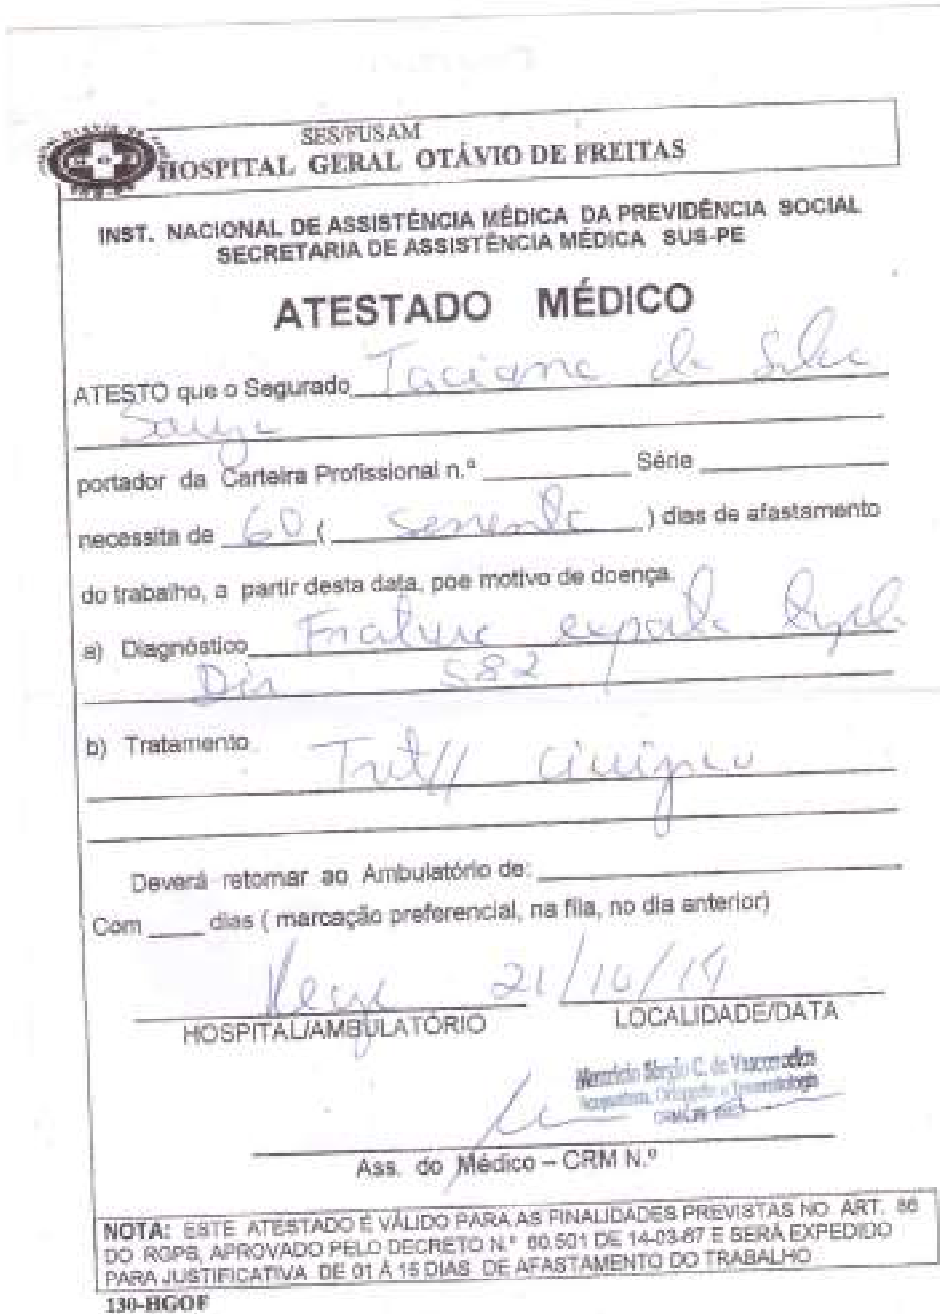 SES/FUSAM
HOSPITAL GERAL OTÁVIO DE FREITAS
INST. NACIONAL DE ASSISTÊNCIA MÉDICA DA PREVIDÊNCIA SOCIAL
SECRETARIA DE ASSISTÊNCIA MÉDICA SUS-PE
ATESTADO MÉDICO
ATESTO que o Segurado Taciana da Silva
Souza
portador da Carteira Profissional n.º Série
necessita de 60 ( sessenta ) dias de afastamento
do trabalho, a partir desta data, poe motivo de doença.
a) Diagnóstico Fratura exposta
S82
b) Tratamento Trat// cirúrgico
Deverá retornar ao Ambulatório de:
Com dias ( marcação preferencial, na fila, no dia anterior)
21/10/19
HOSPITAL/AMBULATÓRIO LOCALIDADE/DATA
Sérgio C. de Vasconcelos
Ortopedia e Traumatologia
Ass. do Médico – CRM N.º
NOTA: ESTE ATESTADO É VÁLIDO PARA AS FINALIDADES PREVISTAS NO ART. 86
DO RGPS, APROVADO PELO DECRETO N.º 60.501 DE 14-03-67 E SERÁ EXPEDIDO
PARA JUSTIFICATIVA DE 01 À 15 DIAS DE AFASTAMENTO DO TRABALHO
130-HGOF